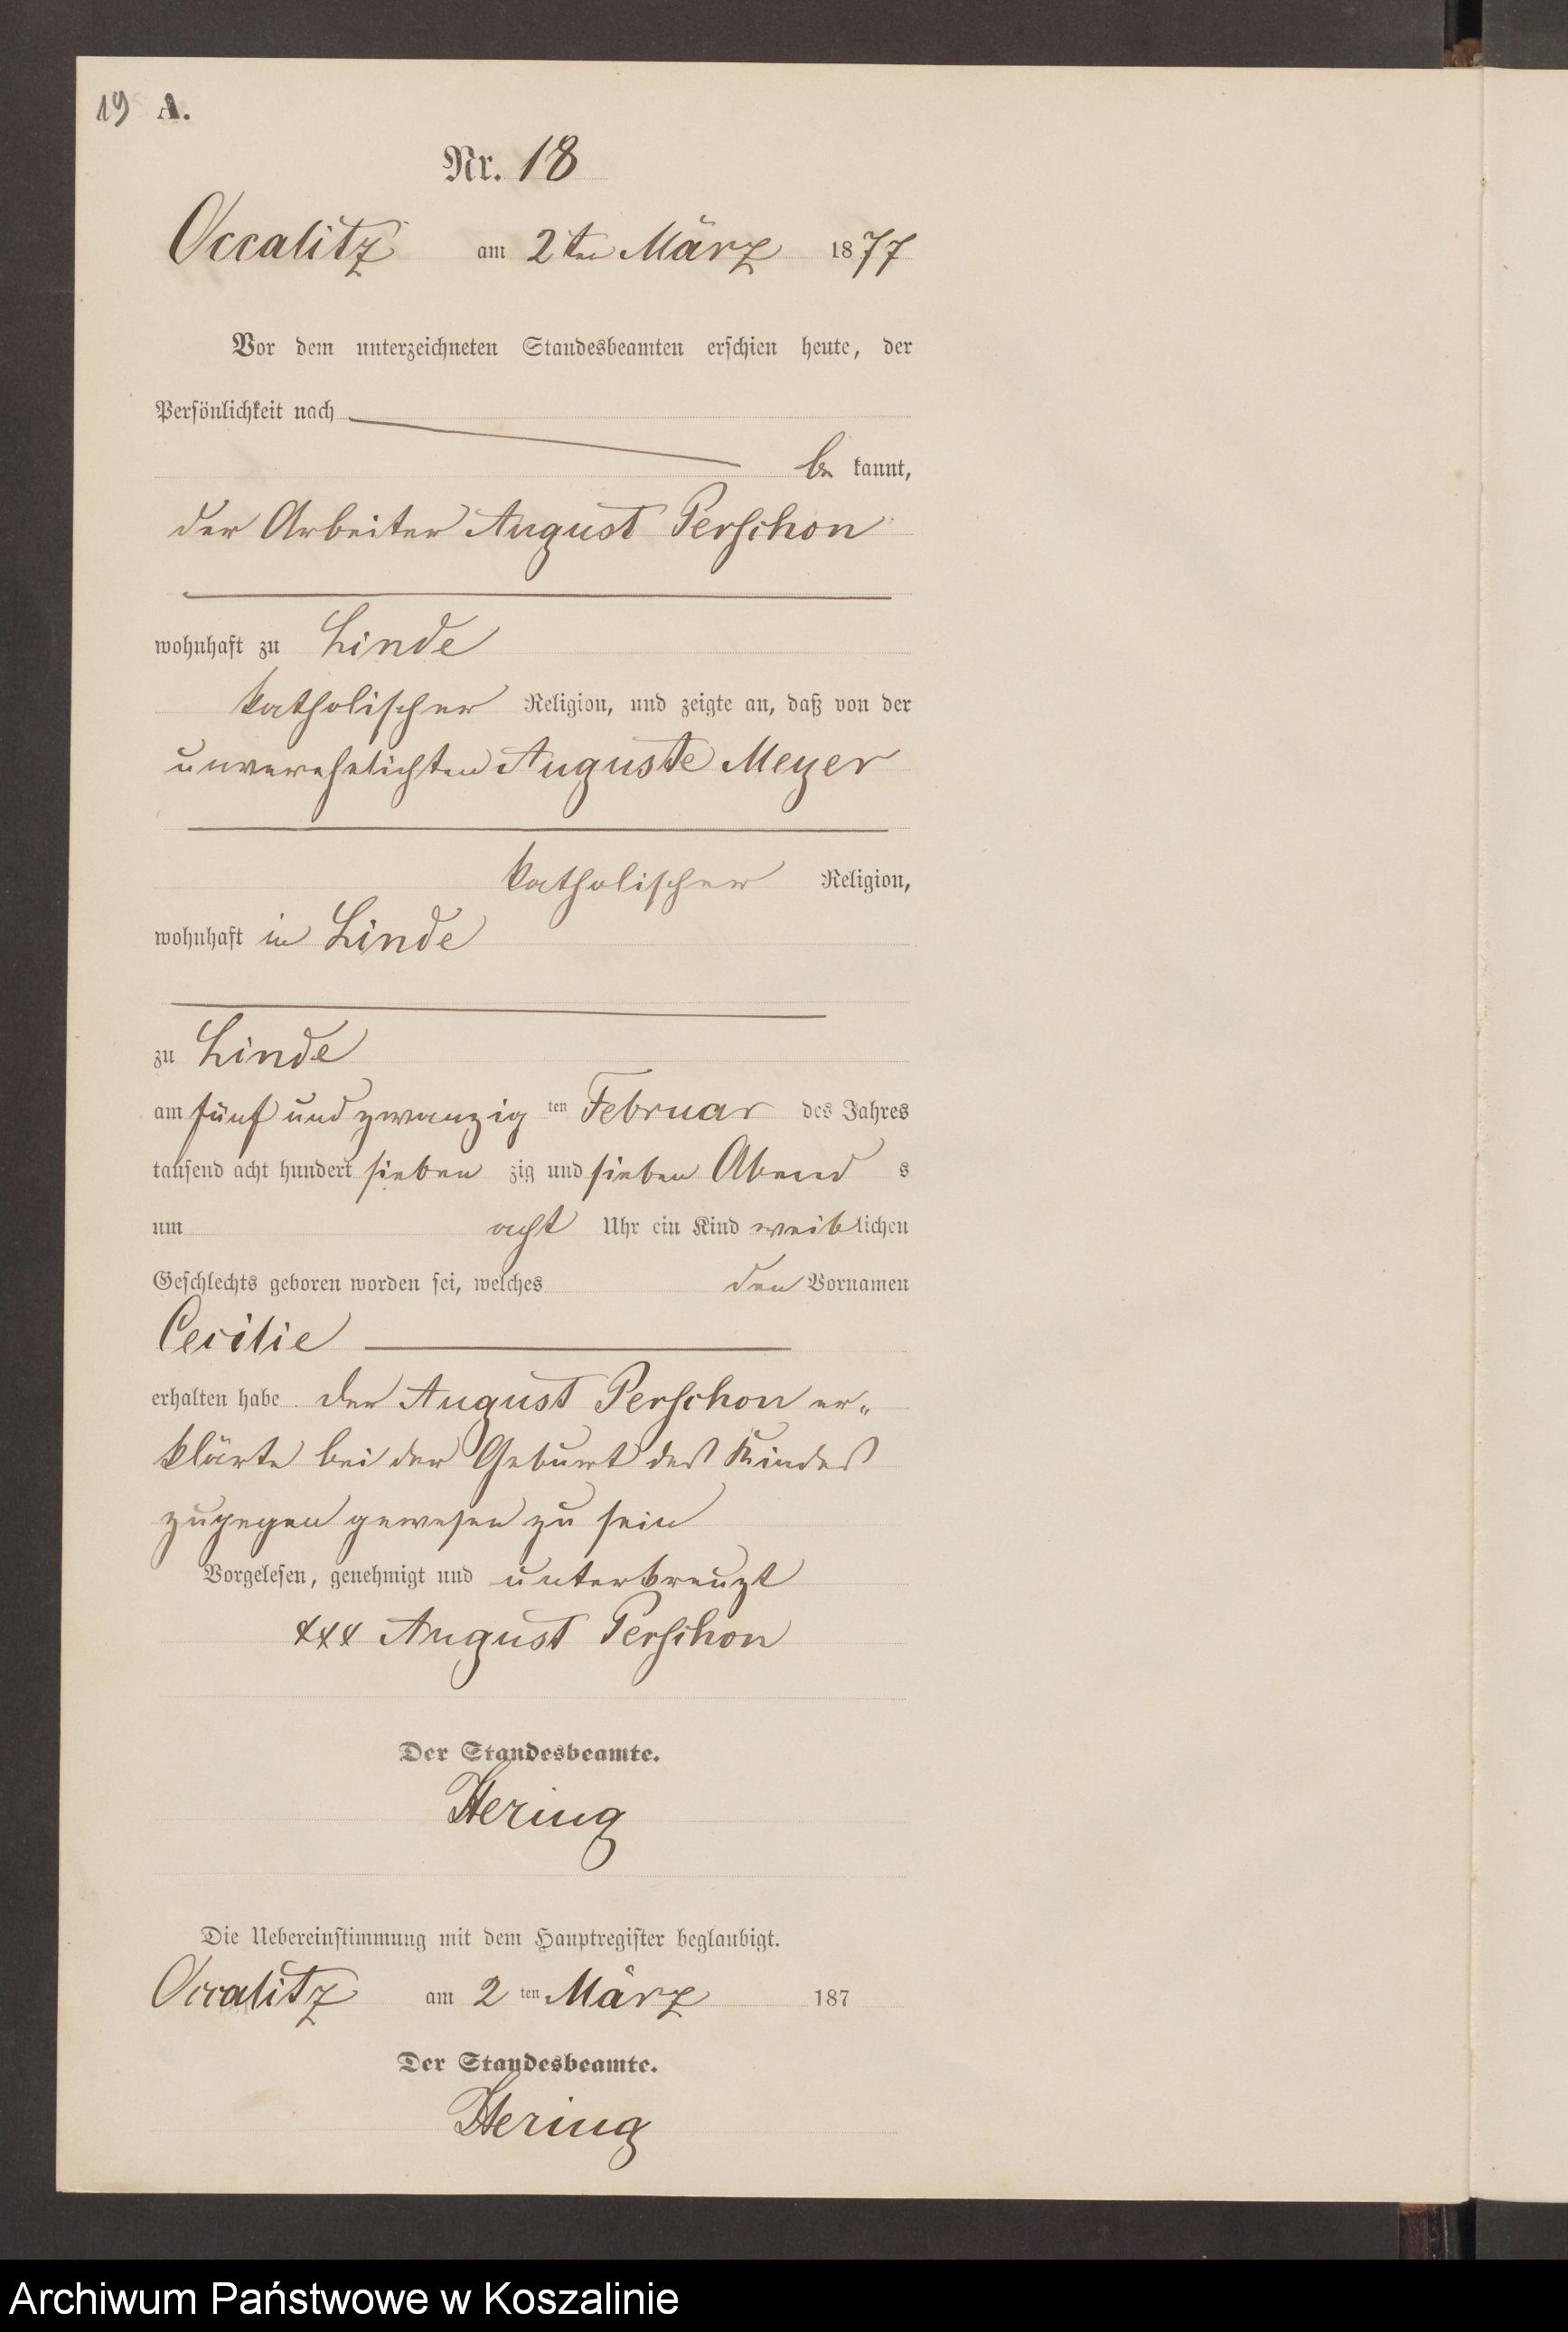 19 A.
Nr. 18
Occalitz am 2ten März 1877
Vor dem unterzeichneten Standesbeamten erschien heute, der
Persönlichkeit nach
be kannt,
der Arbeiter August Perschon
wohnhaft zu Linde
katholischer Religion, und zeigte an, daß von der
unverehelichten Auguste Meyer
katholischer Religion,
wohnhaft in Linde
zu Linde
am fünf und zwanzig ten Februar des Jahres
tausend acht hundert sieben zig und sieben Abend s
um acht Uhr ein Kind weiblichen
Geschlechts geboren worden sei, welches den Vornamen
Cecilie
erhalten habe. Der August Perschon er„
klärte bei der Geburt des Kindes
zugegen gewesen zu sein
Vorgelesen, genehmigt und unterkreuzt
xxx August Perschon
Der Standesbeamte.
Hering
Die Uebereinstimmung mit dem Hauptregister beglaubigt.
Occalitz am 2 ten März 187
Der Standesbeamte.
Hering
Archiwum Państwowe w Koszalinie